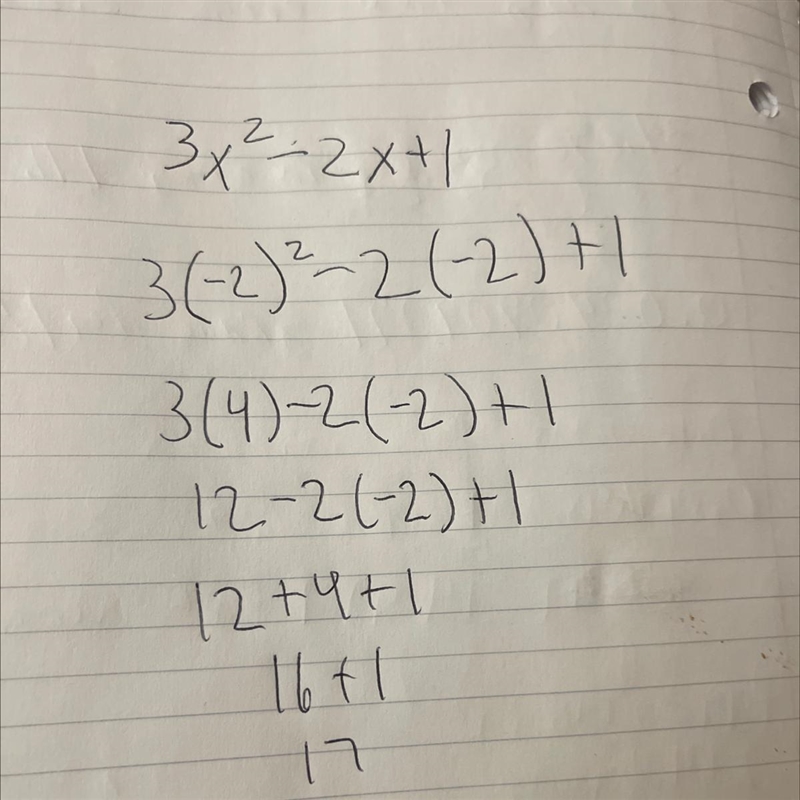 3x² - 2x + 1
3(-2)² - 2(-2) + 1
3(4) - 2(-2) + 1
12 - 2(-2) + 1
12 + 4 + 1
16 + 1
17